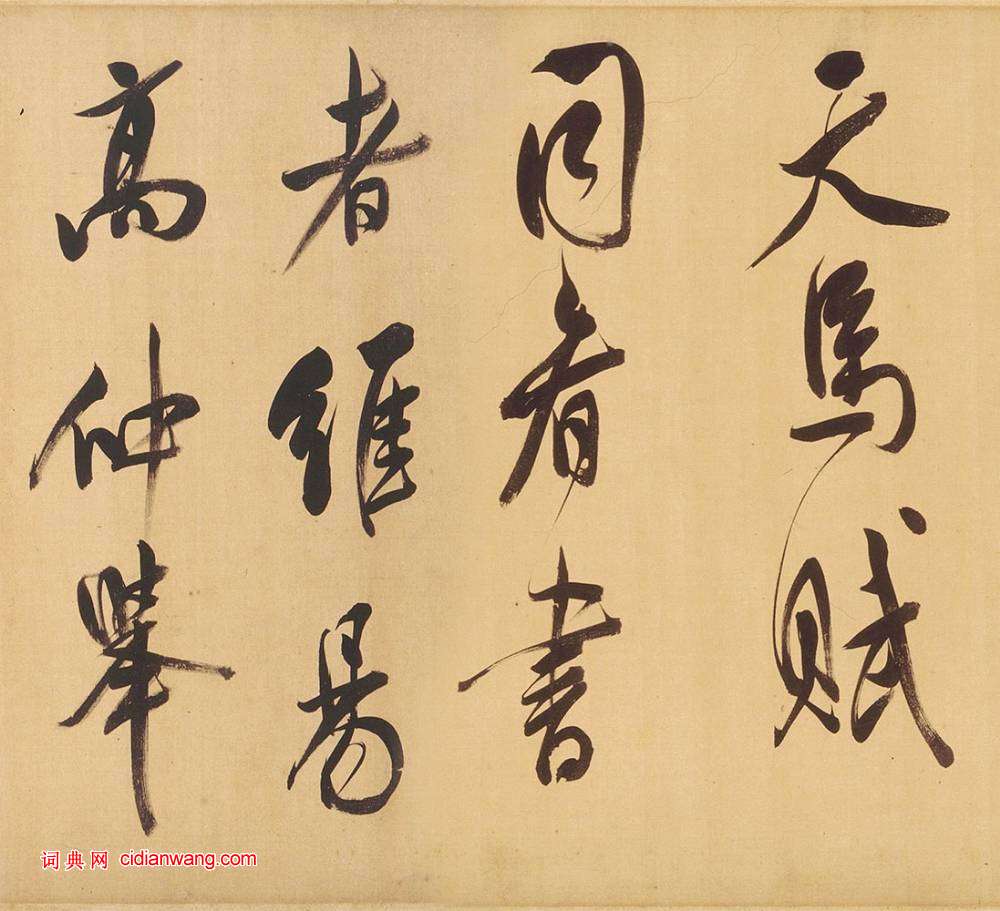 天馬賦
同看書
者維易
高仲舉
词典网 cidianwang.com